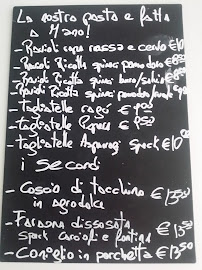 La nostra pasta è fatta
a Mano!
- Ravioli capra rossa e cervo €10
- Ravioli Ricotta spinaci pomodoro €8
- Ravioli Ricotta spinaci burro/salvia €8
- Ravioli Ricotta spinaci pomodoro
- tagliatelle ragù €
- tagliatelle €
- tagliatelle Asparagi Speck €10
i secondi
- Coscio di tacchino €13,50
in agrodolce
- Faraona dissossata €13,50
speck carciofi e fontina
- Coniglio in porchetta €13,50